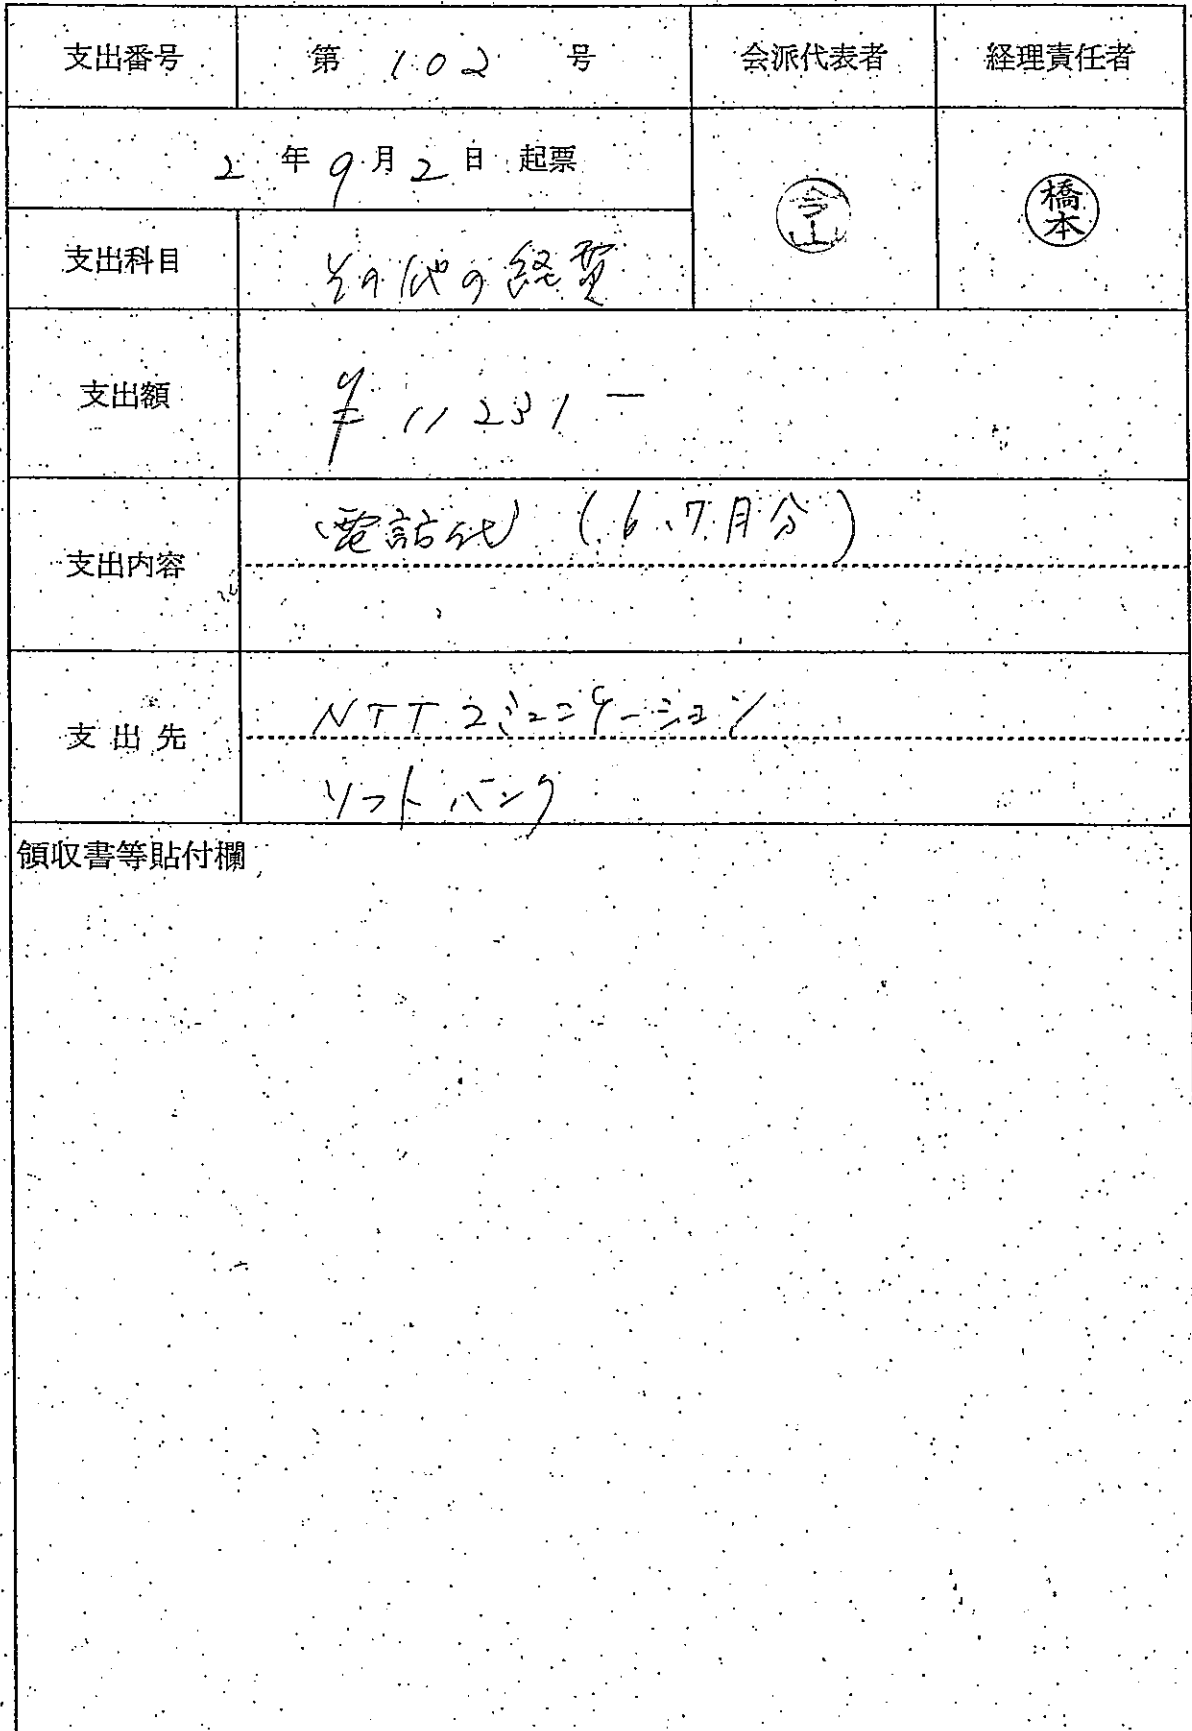 支出番号 第 102 号 会派代表者 経理責任者
2 年 9 月 2 日 起票
今山 橋本
支出科目 その他の経費
支出額 ¥11231-
支出内容 電話代 (6、7月分)
支出先 NTTコミュニケーション
ソフトバンク
領収書等貼付欄